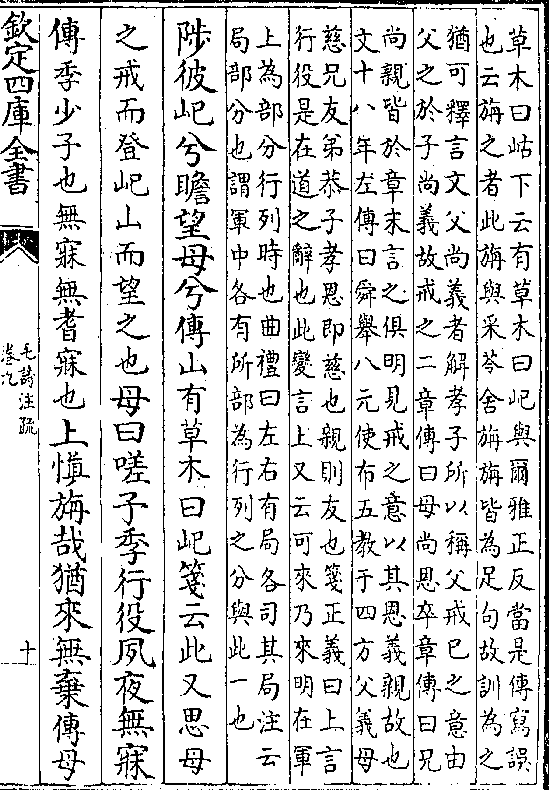 草木曰岵下云有草木曰屺與爾雅正反當是傳寫誤
也云旃之者此旃與采苓舍旃旃皆為足句故訓為之
猶可釋言文父尚義者解孝子所以稱父戒已之意由
父之於子尚義故戒之二章傳曰母尚恩卒章傳曰兄
尚親皆於章末言之俱明見戒之意以其恩義親故也
文十八年左傳曰舜舉八元使布五教于四方父義母
慈兄友弟恭子孝恩即慈也親則友也箋正義曰上言
行役是在道之辭也此變言上又云可來乃來明在軍
上為部分行列時也曲禮曰左右有局各司其局注云
局部分也謂軍中各有所部為行列之分與此一也
陟彼屺兮瞻望母兮傳山有草木曰屺箋云此又思母
之戒而登屺山而望之也母曰嗟予季行役夙夜無寐
傳季少子也無寐無耆寐也上愼旃哉猶來無棄傳母
欽定四庫全書
毛詩注疏
卷九
十